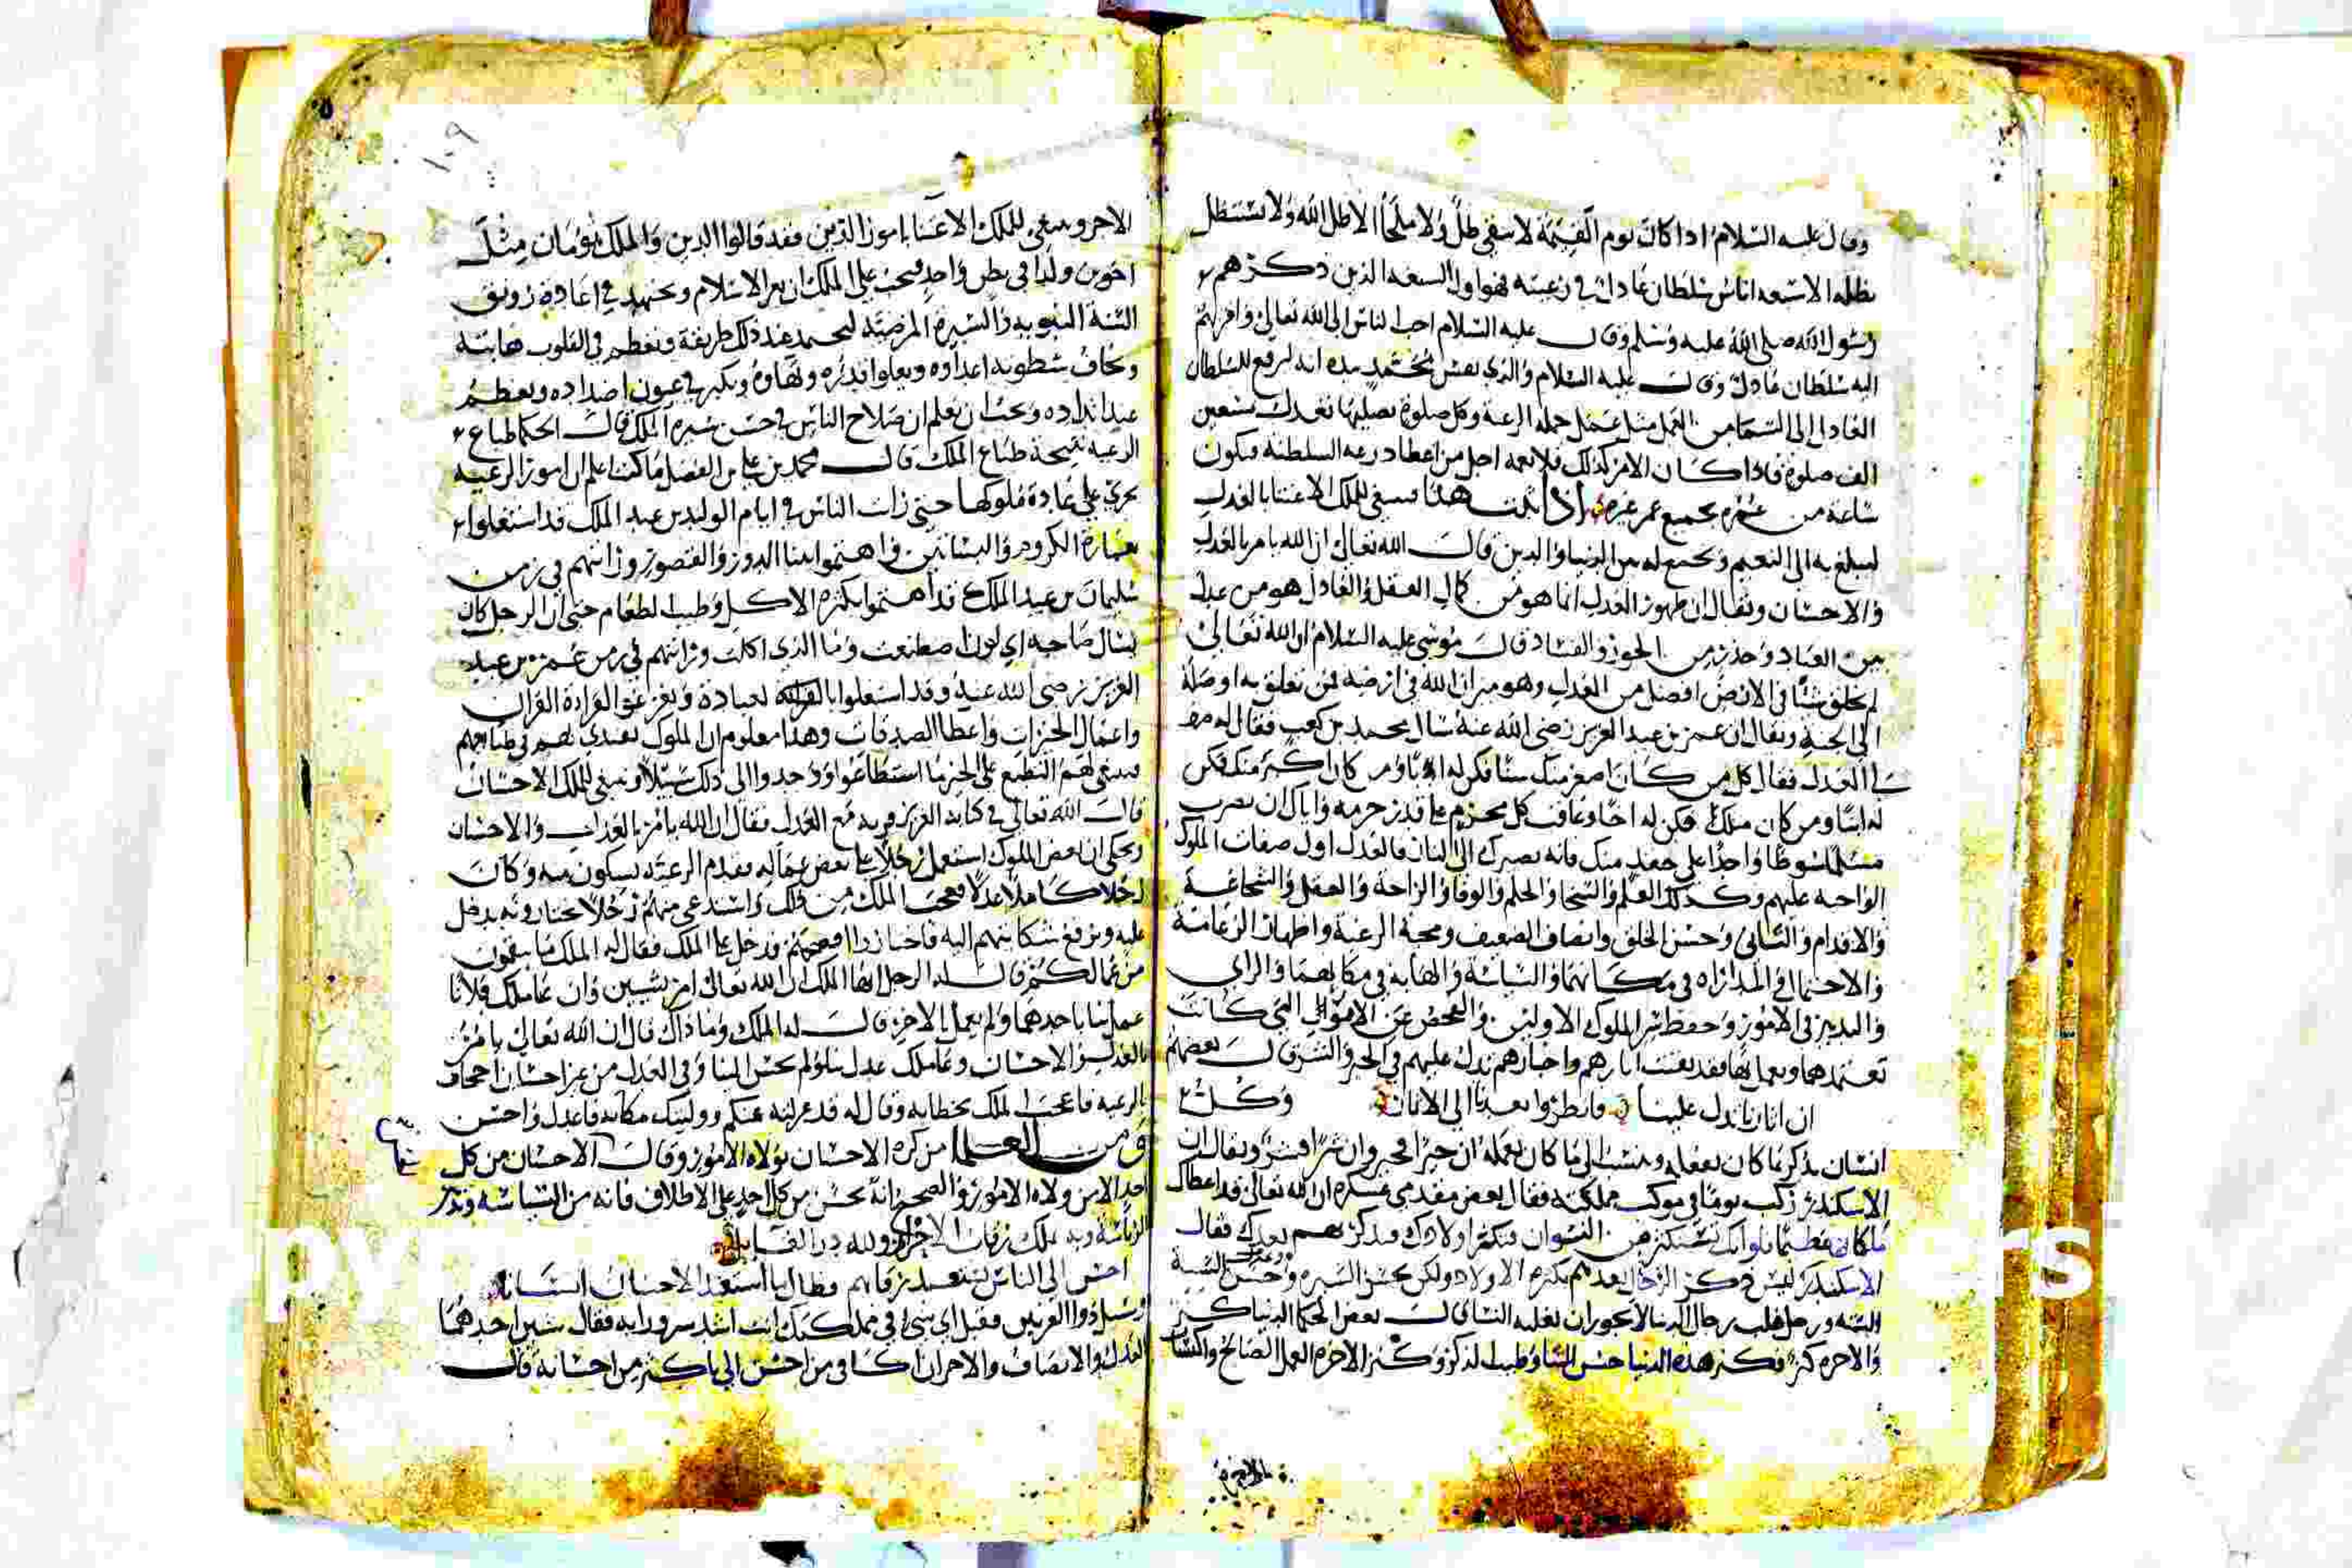 وقال عليه السلام اذا كان يوم القيمة لا يبقى ظل ولا ملجأ الا ظل الله ولا يستظل
بظله الا سبعة اناس سلطان عادل في رعيته فهو اول السبعة الذين ذكرهم
رسول الله صلى الله عليه وسلم وقال عليه السلام احب الناس الى الله تعالى واقربهم
اليه سلطان عادل وقال عليه السلام والذي نفس محمد بيده انه ليرفع للسلطان
العادل الى السما من العمل مثل عمل جملة الرعية وكل صلوة يصليها تعدل سبعين
الف صلوة فاذا كان الامر كذلك فلا نعمة اجل من اعطا درجة السلطنة فيكون
ساعة من عمره بجميع عمر غيره اذا ثبت هذا فينبغي للملك الاعتنا بالعدل
ليبلغ به الى النعيم ويجمع له بين الدنيا والدين قال الله تعالى ان الله يامر بالعدل
والاحسان ويقال ان ظهور العدل انما هو من كمال العقل والعادل هو من عدل
بين العباد وحذر من الجور والفساد قال موسى عليه السلام ان الله تعالى
لم يخلق شيا في الارض افضل من العدل وهو ميزان الله في ارضه فمن تعلق به اوصله
الى الجنة ويقال ان عمر بن عبد العزيز رضي الله عنه سال محمد بن كعب فقال له صف
لي العدل فقال كل من كان اصغر منك سنا فكن له ابا ومن كان اكبر منك فكن
له ابنا ومن كان مثلك فكن له اخا وعاقب كل مجرم على قدر جرمه واياك ان تضرب
مسلما سوطا واحدا على حقد منك فانه يصيرك الى النار فالعدل اول صفات الملوك
الواجبة عليهم وكذلك العلم والسخا والحلم والوفا والراحة والعقل والشجاعة
والاقدام والتانى وحسن الخلق وانصاف الضعيف ومحبة الرعية واظهار الزعامة
والاحتمال والمداراه في مكانهما والسياسة والهابة في مكانهما والراي
والتدبير في الامور وحفظ سير الملوك الاولين والفحص عن الامور التي كانت
تعتمدها ويعمل بها فقد بقيت اثارهم واخبارهم تدل عليهم في الخير والشر قال بعضهم
ان اثارنا تدل علينا فانظروا بعدنا الى الاثار وكل
انسان يذكر بما كان يفعله وينسب الى ما كان يعمله ان خيرا فخير وان شرا فشر ويقال ان
الاسكندر ركب يوما في موكب مملكته فقال بعض مقدمي عسكره ان الله تعالى قد اعطاك
ملكا عظيما فلو انك تستكثر من النسوان فتكثر اولادك فتذكر بهم بعدك فقال
الاسكندر ليس ذكر الرجال بعدهم بكثرة الاولاد ولكن بحسن السيره وحسن السنة
وعدل
السنة ورجل غلب رجال الدنيا لا يجوز ان تغلبه النسا قال بعض الحكما الدنيا كنز
والاخرة كنز فكنز هذه الدنيا حسن الثنا وطيب الذكر وكنز الاخرة العمل الصالح واكتساب
الاجر
١٠٩
الاجر وينبغي للملك الاعتنا بامور الدين فقد قالوا الدين والملك توءمان مثل
اخوين ولدا في بطن واحد فيجب على الملك ان يعز الاسلام ويجتهد في اعادة رونق
السنة النبوية والسيرة المرضية ليحمد عند ذلك طريقة وتعظم في القلوب هابته
ويخاف سطوته اعداوه ويعلوا قدره وبهاوه ويكبر في عيون اضداده ويعظم
عند انداده ويجب ان يعلم ان صلاح الناس في حسن سيرة الملك قالت الحكما طباع
الرعية نتيجة طباع الملك قال محمد بن علي بن الفضل ما كنت اعلم ان امور الرعية
تجري على عادة ملوكها حتى رايت الناس في ايام الوليد بن عبد الملك قد اشتغلوا
بعمارة الكروم والبساتين واهتموا ببنا الدور والقصور ورايتهم في زمن
سليمان بن عبد الملك قد اهتموا بكثرة الاكل وطيب الطعام حتى ان الرجل كان
يسال صاحبه اي لون اصطنعت وما الذي اكلت ورايتهم في زمن عمر بن عبد
العزيز رضي الله عنه وقد اشتغلوا بالعبادة وتفرغوا لقراءة القران
واعمال الخيرات واعطا الصدقات وهذا معلوم ان الملوك يقتدى بهم في طباعهم
فينبغي لهم التطبع على الخير ما استطاعوا ووجدوا الى ذلك سبيلا وينبغي للملك الاحسان
قال الله تعالى في كتابه العزيز قرنه مع العدل فقال ان الله يامر بالعدل والاحسان
ويحكى ان بعض الملوك استعمل رجلا على بعض عماله فقدم الرعية يشكون منه وكان
رجلا كاملا عدلا فعجب الملك من ذلك واستدعى منهم رجلا يختارونه يدخل
عليه ويرفع شكايتهم اليه فاختاروا افصحهم فدخل على الملك فقال له الملك ما تنقمون
من عاملكم قال له الرجل ايها الملك ان الله تعالى امر بشيين وان عاملك فلانا
عمل بنا باحدهما ولم يعمل بالاخر قال له الملك وما ذاك قال ان الله تعالى يامر
بالعدل والاحسان وعاملك عدل بنا ولم يحسن الينا وفي العدل من غير احسان اجحاف
بالرعية فاعجب الملك بخطابه وقال له قد عزلته عنكم ووليتك مكانه فاعدل واحسن
ومن العلما من كره الاحسان لولاة الامور وقال الاحسان من كل
احد الا من ولاة الامور والصحيح انه يحسن من كل احد على الاطلاق فانه من السياسة وتدبر
الرياسة وبه تملك رقاب الاحرار ولله در القايل
احسن الى الناس تستعبد رقابهم فطال ما استعبد الاحسان انسانا
وسيل ذوا القرنين فقيل اي شي في مملكتك انت اشد سرورا به فقال شيين احدهما
العدل والانصاف والاخر ان اكافي من احسن الي باكثر من احسانه قال